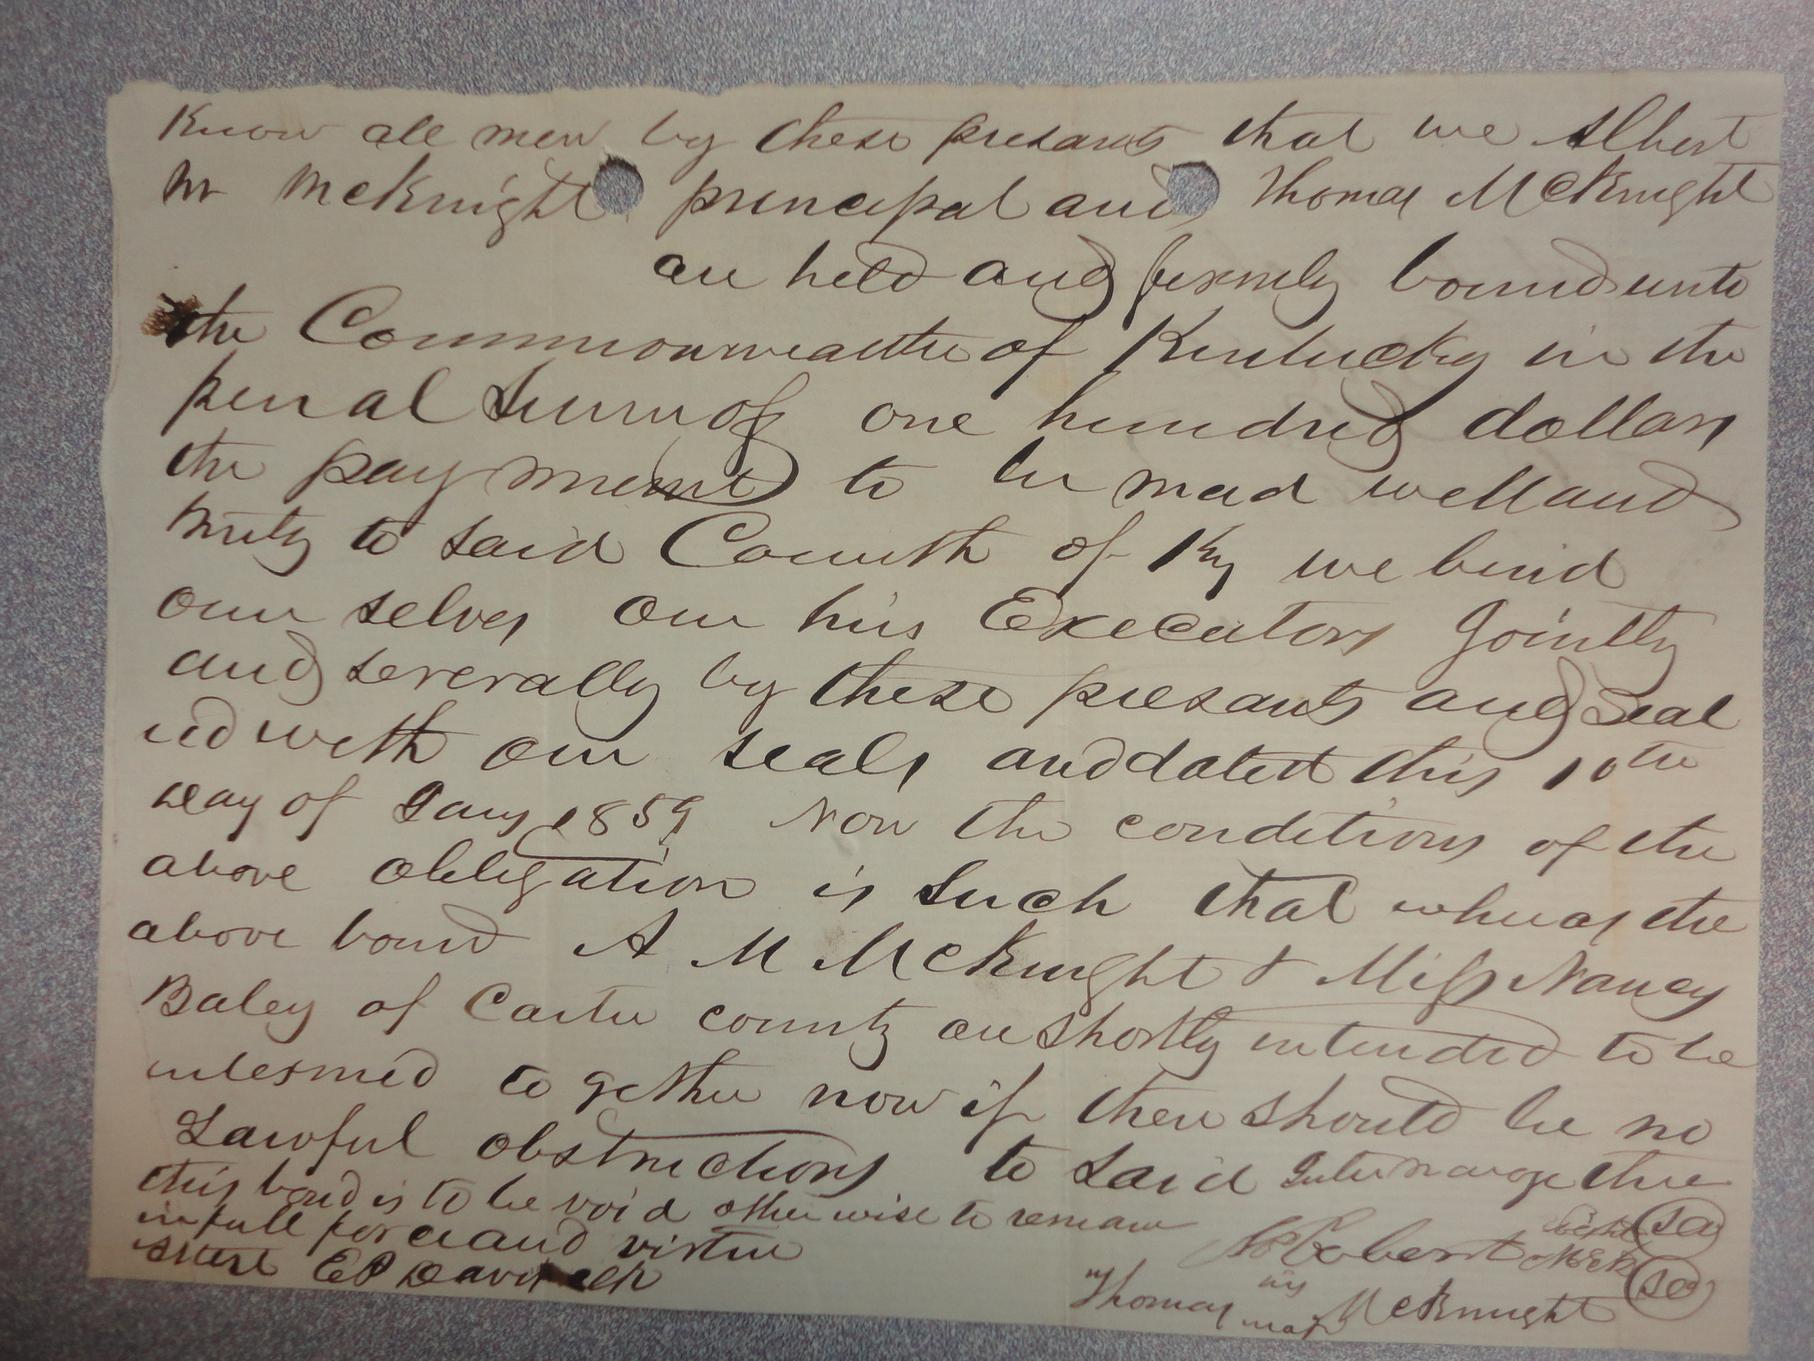 Know all men by these presants that we Albert
M McKnight principal and Thomas McKnight
are held and firmly bound unto
the Commonwealthe of Kentucky in the
penal Sum of one hundred dollars
the payment to be mad well and
truly to said Comwth of Ky we bind
our selves our his Executors Jointly
and severally by these presants and Seal
ed with our seals and dated this 10th
day of Jany 1859 Now the conditions of the
above obligation is Such that whereas the
above bound A M McKnight & Miss Nancy
Baley of Carter county are Shortly intended to be
intermed to gether now if there should be no
Lawful obstructions to said Intermarage thire
this bond is to be void other wise to remain
in full force and virtue
Attest E P Davi clk
Thomas his mark McKnight